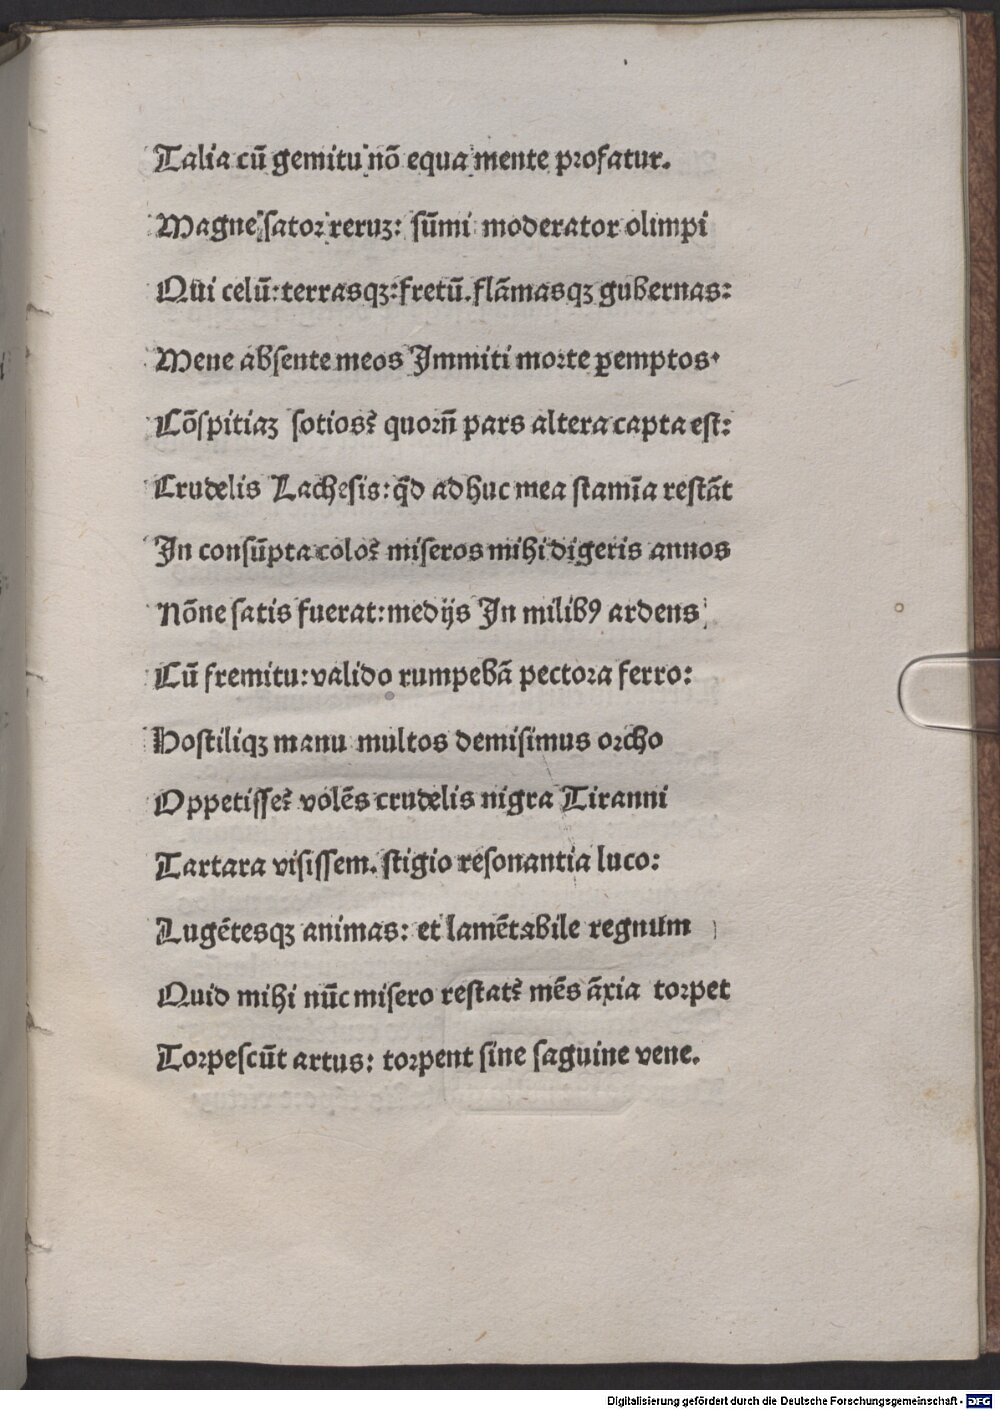 Talia cū gemitu nō equa mente profatur.
Magne sator reruz: sūmi moderator olimpi
Qui celū: terrasqȝ: fretū. flāmasqȝ gubernas:
Mene absente meos Immiti morte ꝑemptos.
Cōspitiaȝ sotios? quorū pars altera capta est:
Crudelis Lachesis: qd̄ adhuc mea stamīa restāt
In consūpta colo? miseros mihi digeris annos
Nōne satis fuerat: medijs In milibꝰ ardens
Cū fremitu: valido rumpebā pectora ferro:
Hostiliqȝ manu multos demisimus orcho
Oppetisse? volēs crudelis nigra Tiranni
Tartara visissem. stigio resonantia luco:
Lugētesqȝ animas: et lamētabile regnum
Quid mihi nūc misero restat? mēs āxia torpet
Torpescūt artus: torpent sine saguine vene.
Digitalisierung gefördert durch die Deutsche Forschungsgemeinschaft - DFG